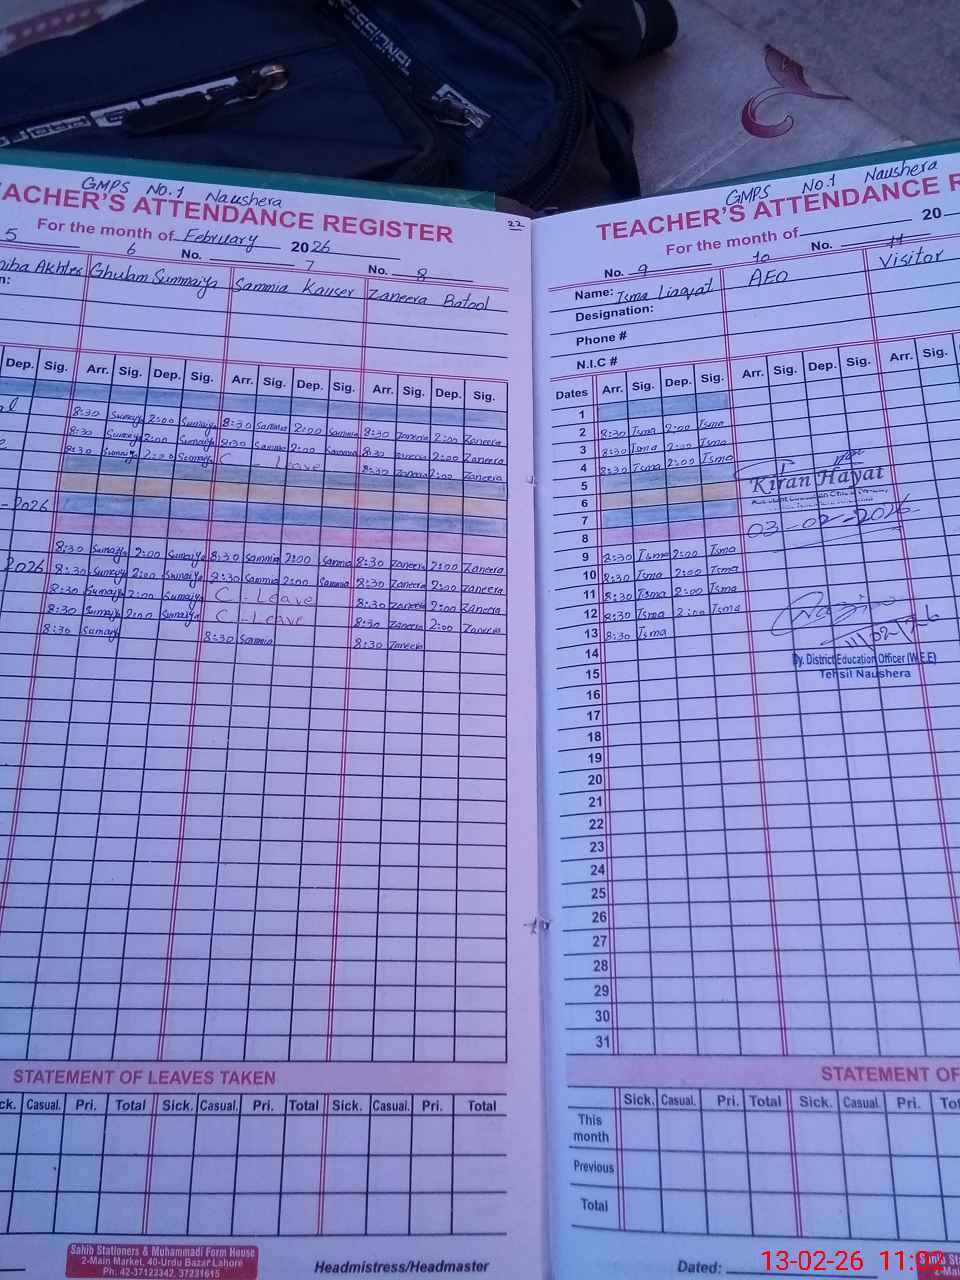 GMPS No.1 Naushera
EACHER'S ATTENDANCE REGISTER
For the month of February 2026
22
5 6 No. 7 No. 8
Akhter Ghulam Summaiya Sammia Kauser Zaneera Batool
Dep. Sig. Arr. Sig. Dep. Sig. Arr. Sig. Dep. Sig. Arr. Sig. Dep. Sig.
8:30 Sumaiya 2:00 Sumaiya 8:30 Sammia 2:00 Sammia 8:30 Zaneera 2:00 Zaneera
8:30 Sumaiya 2:00 Sumaiya 8:30 Sammia 2:00 Sammia 8:30 Zaneera 2:00 Zaneera
8:30 Sumaiya 2:00 Sumaiya C - Leave 8:30 Zaneera 2:00 Zaneera
2026
8:30 Sumaiya 2:00 Sumaiya 8:30 Sammia 2:00 Sammia 8:30 Zaneera 2:00 Zaneera
2026 8:30 Sumaiya 2:00 Sumaiya 8:30 Sammia 2:00 Sammia 8:30 Zaneera 2:00 Zaneera
8:30 Sumaiya 2:00 Sumaiya C - Leave 8:30 Zaneera 2:00 Zaneera
8:30 Sumaiya 2:00 Sumaiya C - Leave 8:30 Zaneera 2:00 Zaneera
8:30 Sumaiya 8:30 Sammia 8:30 Zaneera
STATEMENT OF LEAVES TAKEN
ck. Casual. Pri. Total Sick. Casual. Pri. Total Sick. Casual. Pri. Total
Sahib Stationers & Muhammadi Form House
2-Main Market, 40-Urdu Bazar Lahore
Ph: 42-37123342, 37231615
Headmistress/Headmaster
GMPS No.1 Naushera
TEACHER'S ATTENDANCE R
For the month of 20
No. 9 10 No. 11
Name: Isma Liaqat AEO Visitor
Designation:
Phone #
N.I.C #
Dates Arr. Sig. Dep. Sig. Arr. Sig. Dep. Sig. Arr. Sig.
1
2 8:30 Isma 2:00 Isma
3 8:30 Isma 2:00 Isma
4 8:30 Isma 2:00 Isma
5 Kiran Hayat
6
7 03-02-2026
8
9 8:30 Isma 2:00 Isma
10 8:30 Isma 2:00 Isma
11 8:30 Isma 2:00 Isma
12 8:30 Isma 2:00 Isma
13 8:30 Isma
14 11/02/26
15 Dy. District Education Officer (W.E.E)
Tehsil Naushera
16
17
18
19
20
21
22
23
24
25
26
27
28
29
30
31
STATEMENT OF
Sick. Casual. Pri. Total Sick. Casual. Pri. To
This month
Previous
Total
Dated:
13-02-26 11:0